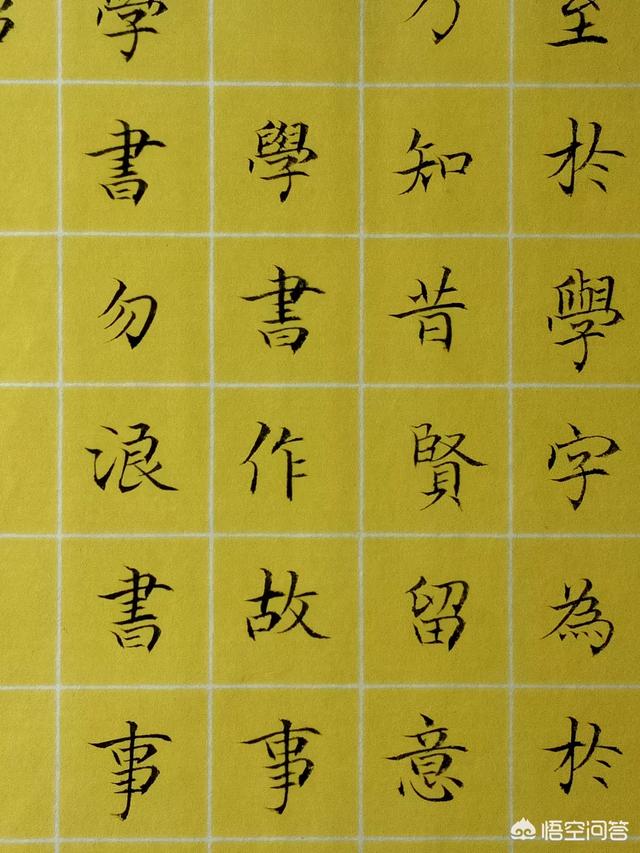 至於學字為於
知昔賢留意
學書作故事
學書勿浪書事
悟空问答